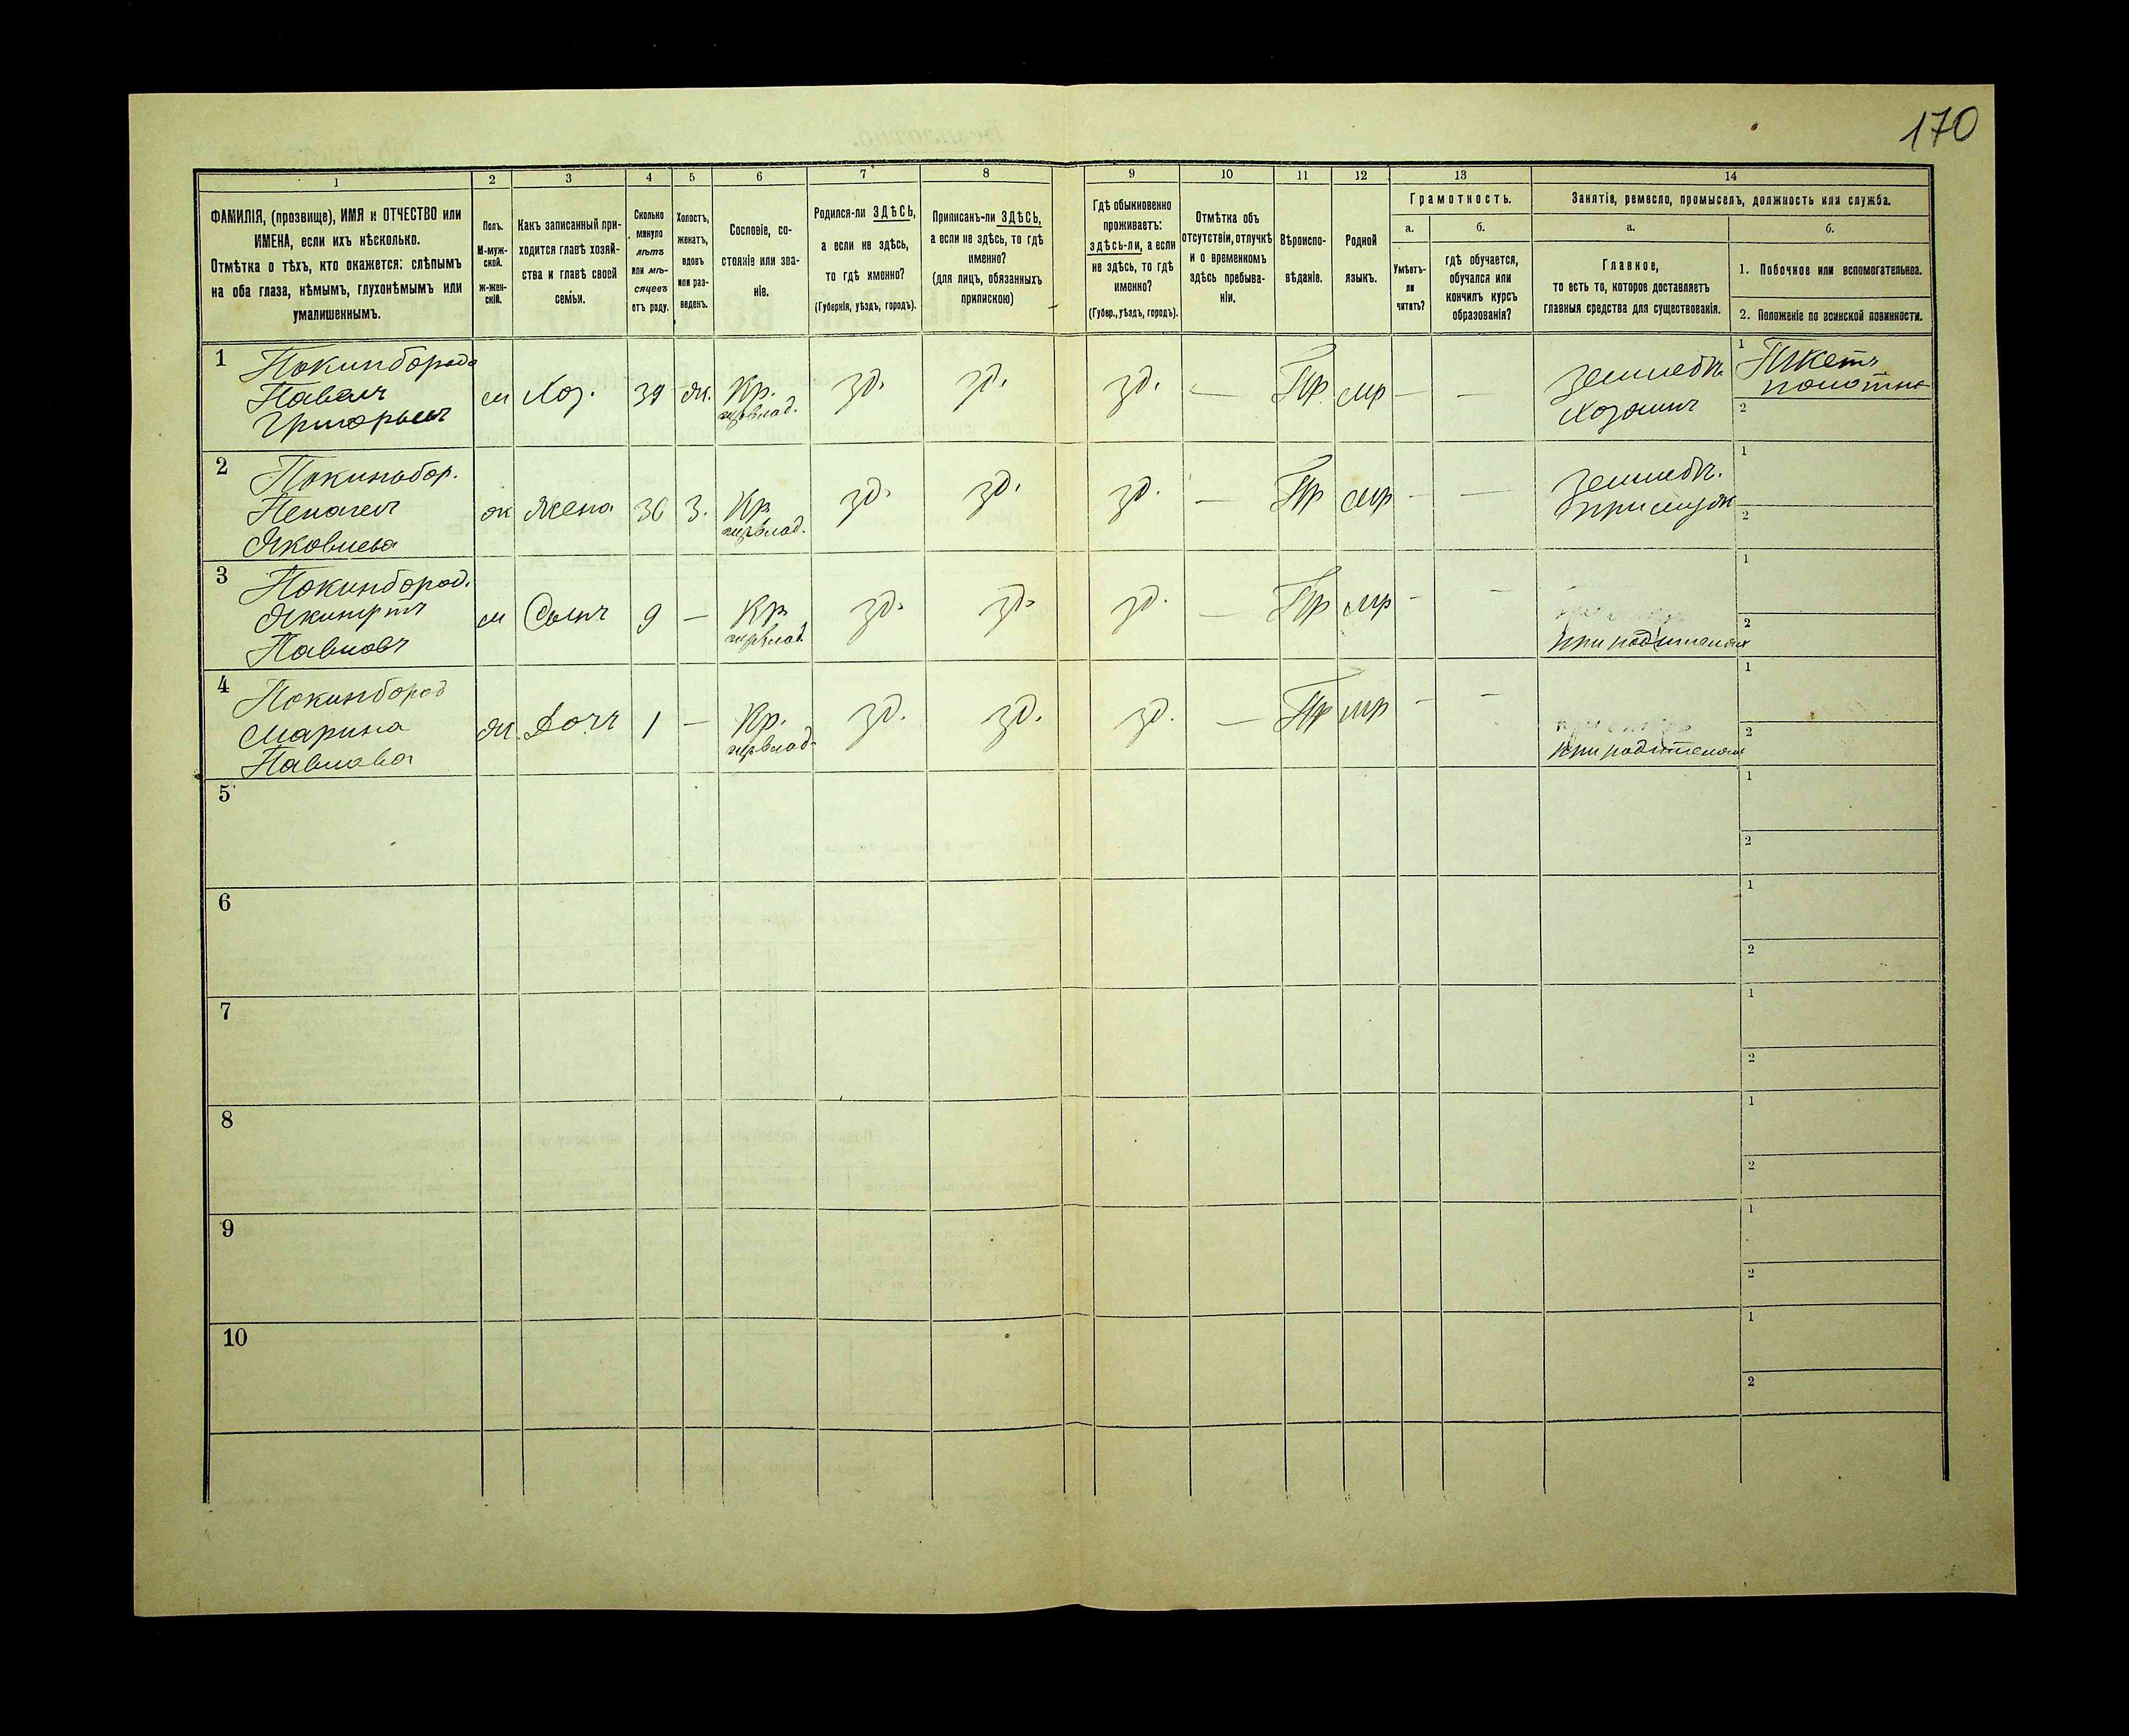 170
1 2 3 4 5 6 7 8 9 10 11 12 13 14
ФАМИЛІЯ, (прозвище), ИМЯ и ОТЧЕСТВО или
ИМЕНА, если ихъ нѣсколько.
Отмѣтка о тѣхъ, кто окажется: слѣпымъ
на оба глаза, нѣмымъ, глухонѣмымъ или
умалишеннымъ.
Полъ.
М-муж-
ской.
ж-жен-
скій.
Какъ записанный при-
ходится главѣ хозяй-
ства и главѣ своей
семьи.
Сколько
минуло
лѣтъ
или мѣ-
сяцевъ
отъ роду.
Холостъ,
женатъ,
вдовъ
или раз-
веденъ.
Сословіе, со-
стояніе или зва-
ніе.
Родился-ли ЗДѢСЬ,
а если не здѣсь,
то гдѣ именно?
(Губернія, уѣздъ, городъ).
Приписанъ-ли ЗДѢСЬ,
а если не здѣсь, то гдѣ
именно?
(для лицъ, обязанныхъ
припискою)
Гдѣ обыкновенно
проживаетъ:
здѣсь-ли, а если
не здѣсь, то гдѣ
именно?
(Губер., уѣздъ, городъ).
Отмѣтка объ
отсутствіи, отлучкѣ
и о временномъ
здѣсь пребыва-
ніи.
Вѣроиспо-
вѣданіе.
Родной
языкъ.
Грамотность.
а.
Умѣетъ-
ли
читать?
б.
гдѣ обучается,
обучался или
кончилъ курсъ
образованія?
Занятіе, ремесло, промыселъ, должность или служба.
а.
Главное,
то есть то, которое доставляетъ
главныя средства для существованія.
б.
1. Побочное или вспомогательное.
2. Положеніе по воинской повинности.
1 Покиньборода
Павелъ
Григорьевъ
м Хоз. 39 ж. Кр.
зд. зд. зд. — Пр. мр — —
Хозяинъ
1 Ткетъ
полотно
2
2 Покиньбор.
Пелагея
Яковлева
ж Жена 36 З. Кр.
зд. зд. зд. — Пр мр — —
при муж
1
2
3 Покиньбород.
Павловъ
м Сынъ 9 — Кр
зд. зд. зд. — Пр мр — —
при родителях
1
2
4 Покиньбород
Марина
Павлова
ж. Дочь 1 — Кр.
зд. зд. зд. — Пр мр — —
при родителях
1
2
5
1
2
6
1
2
7
1
2
8
1
2
9
1
2
10
1
2